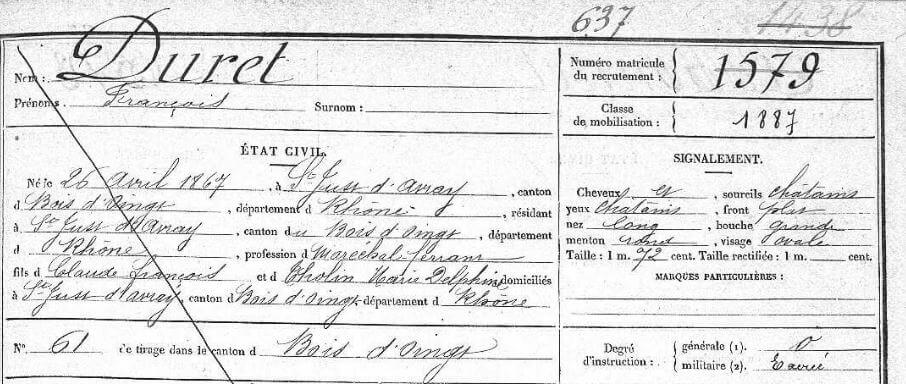 637 1438
Nom : Duret
Prénoms : François Surnom :
Numéro matricule du recrutement : 1579
Classe de mobilisation : 1887
ÉTAT CIVIL.
Né le 26 Avril 1867, à St Just d'Avray, canton
d Bois d'Oingt, département d Rhône, résidant
à St Just d'Avray, canton du Bois d'Oingt, département
d Rhône, profession d Maréchal-ferrant
fils d Claude François et d Tholin Marie Delphine domiciliés
à St Just d'Avray, canton d Bois d'Oingt, département d Rhône
N° 61 de tirage dans le canton d Bois d'Oingt
SIGNALEMENT.
Cheveux et sourcils châtains
yeux châtains, front plat
nez long, bouche grande
menton rond, visage ovale
Taille : 1 m. 72 cent. Taille rectifiée : 1 m. cent.
MARQUES PARTICULIÈRES :
Degré d'instruction : générale (1). 0
militaire (2). Exercé